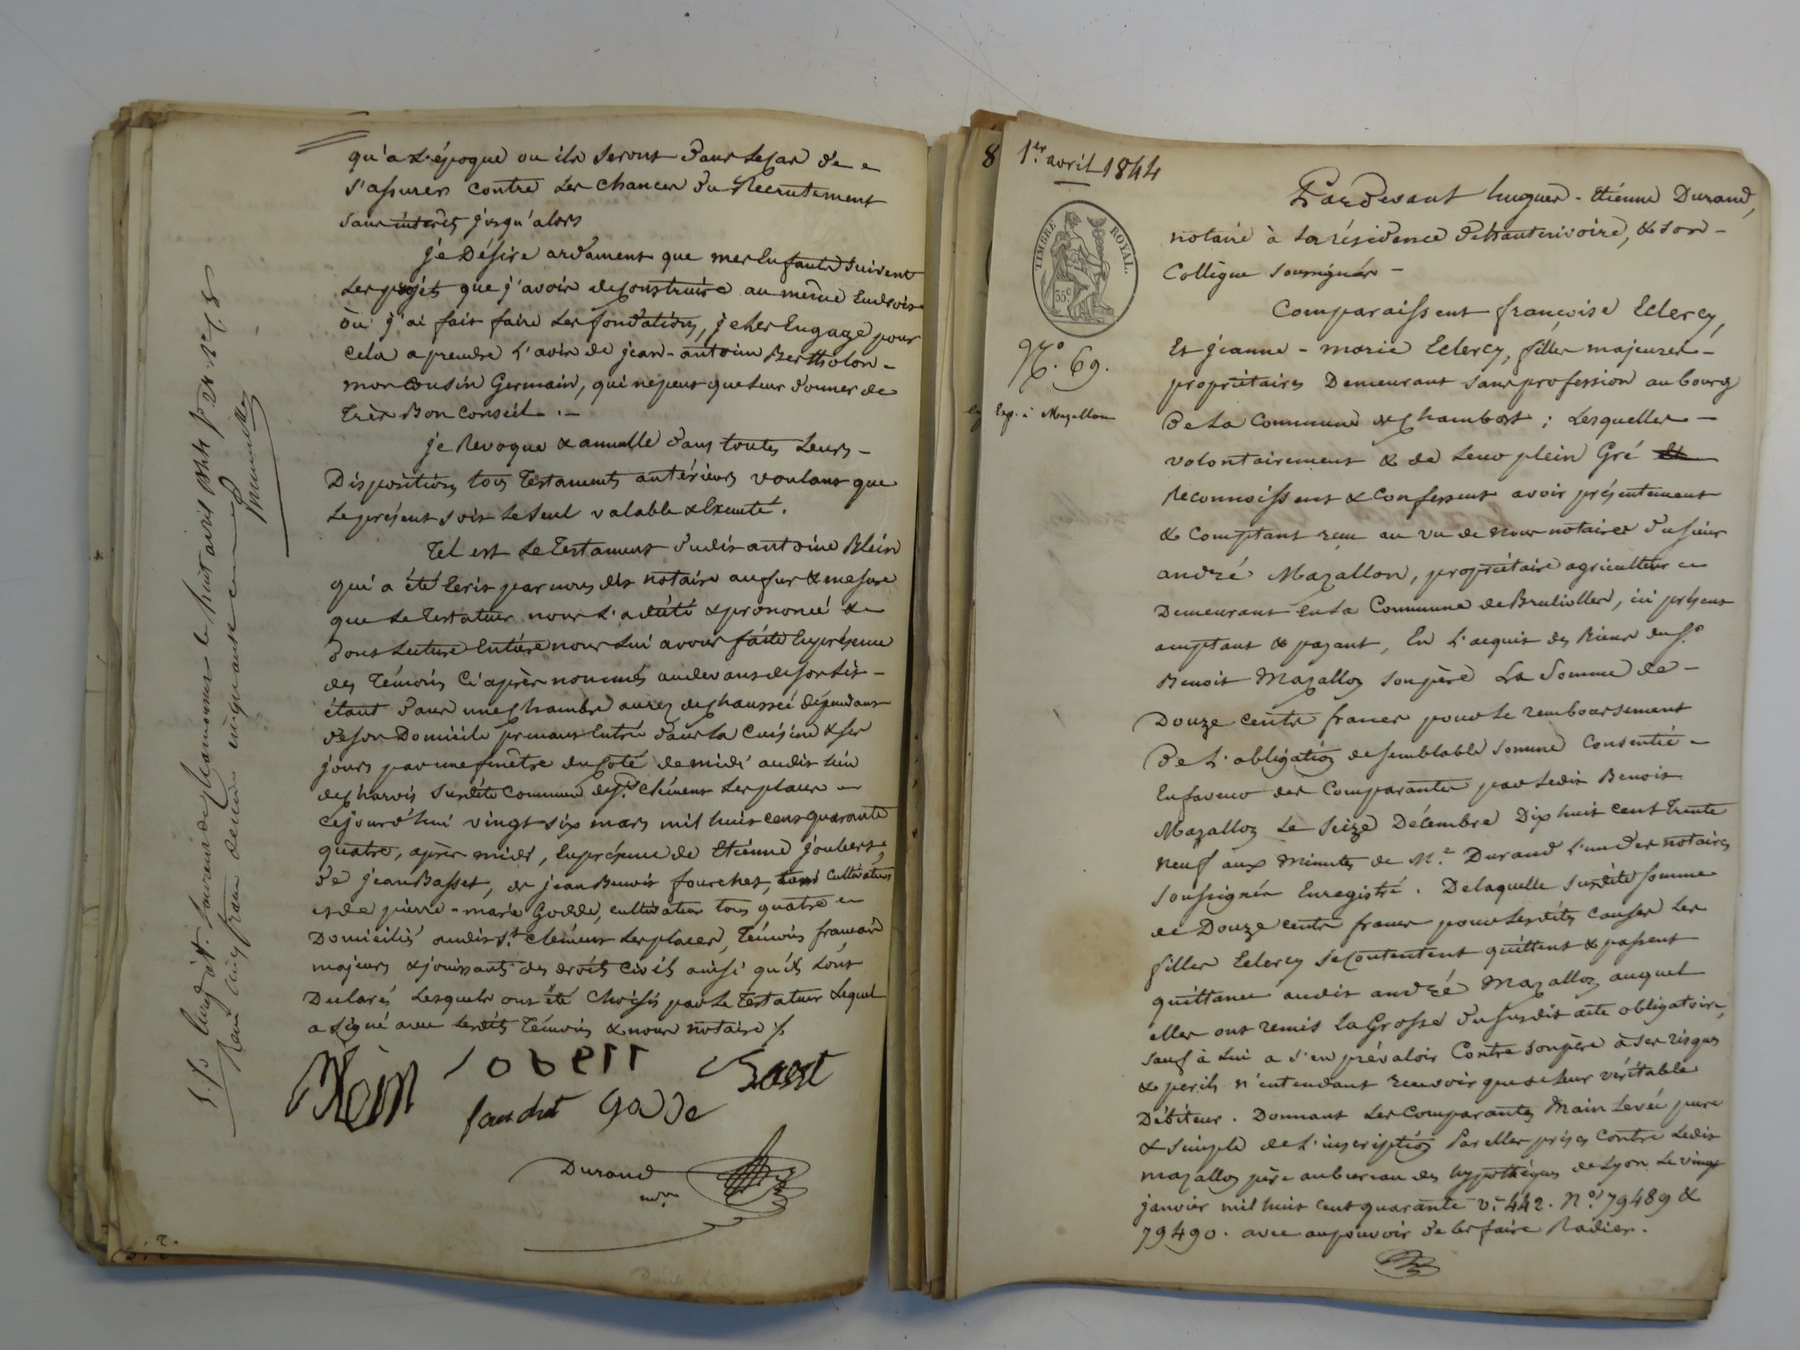 qu'a l'époque ou ils seront dans le cas de
s'assurer contre les chances du Recrutement
sans intérêt jusqu'alors
je Désire ardament que mes enfants suivent
les projets que j'avois de construire au même Endroit
où j'ai fait faire les fondations, je les Engage pour
cela a prendre l'avis de jean-antoine Bertholon
mon cousin Germain, qui ne peut que leur donner de
très Bon Conseil.
je Revoque & annulle dans toutes leurs
Dispositions tous testaments antérieurs voulant que
le présent soit le seul valable & Executé.
Tel est le testament dudit antoine Blein
qui a été écrit par nous dit notaire au fur & mesure
que le testateur nous l'a dicté & prononcé &
dont lecture Entière nous lui avons faite En présence
des témoins Ci après nommés au devant de son lit
étant dans une chambre au rez de chaussée dépendant
de son Domicile prenant Entrée dans la Cuisine & ses
jours par une fenêtre du côté de midi audit lieu
de charvis susdite Commune de St. Clément les places
cejourd'hui vingt six mars mil huit cent quarante
quatre, après midi, En présence de Etienne joubert,
de jean Basset, de jean Benoit fouchet, tous Cultivateurs
et de pierre-marie Godde, cultivateur tous quatre
Domiciliés audit St. Clément les places, témoins français
majeurs & jouissants des droits civils ainsi qu'ils l'ont
Declaré lesquels ont été choisis par le testateur lequel
a signé avec lesdits témoins & nous notaire
Blein
jobert
Baset
fauchet
Godde
Durand
Enregistré à St. Laurent de Chamousset le huit avril 1844 f° 28 r° c. 8
Reçu cinq francs decime cinquante centimes
8
1er avril 1844
TIMBRE ROYAL.
35 c
N°. 69.
Exp. à Mazallon
Pardevant hugues-Etienne Durand,
notaire à la résidence d'hauterivoire, & son
Collègue soussignés
Comparaissent françoise Eclercy,
Et jeanne-marie Eclercy, filles majeures
propriétaires Demeurant sans profession au bourg
de la Commune de Chambost; lesquelles
volontairement & de leur plein Gré
Reconnoissent & Confessent avoir présentement
& comptant reçu au vu de nous notaires du sieur
andré Mazallon, propriétaire agriculteur
Demeurant En la Commune de Brullioles, ici présent
acceptant & payant, En l'acquit des Biens du Sr.
Benoit Mazallon son père La Somme de
Douze cents francs pour le remboursement
De l'obligation de semblable somme Consentie
En faveur des Comparantes par ledit Benoit
Mazallon le seize Décembre Dix huit cent trente
neuf aux minutes de Me. Durand l'un des notaires
soussignés Enregistré. De laquelle susdite somme
de Douze cents francs pour lesdites causes les
filles Eclercy se contentent quittent & passent
quittance audit andré Mazallon auquel
elles ont remis la Grosse du susdit acte obligatoire,
sauf à lui a s'en prévaloir Contre son père à ses risques
& perils n'entendant recevoir que de leur véritable
Débiteur. Donnant les Comparantes Main levée pure
& simple de l'inscription par elles prises Contre ledit
Mazallon père au bureau des hypothèques de Lyon le vingt
janvier mil huit cent quarante v. 442. N.os 79489 &
79490. avec aupouvoir de les faire Radier.